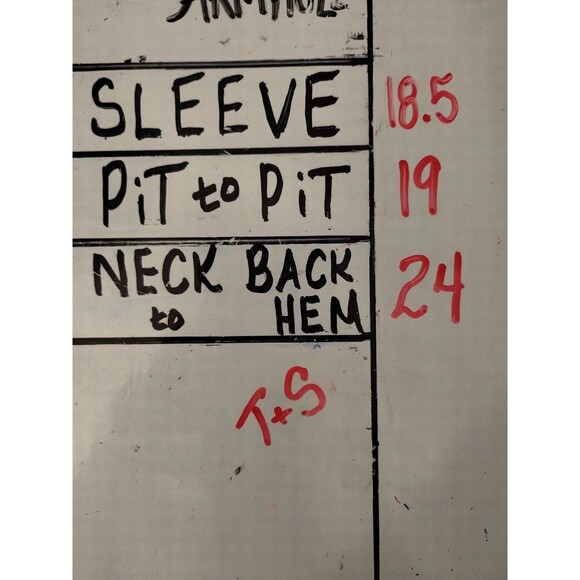 SLEEVE 18.5
PiT to PiT 19
NECK BACK
to HEM 24
T+S